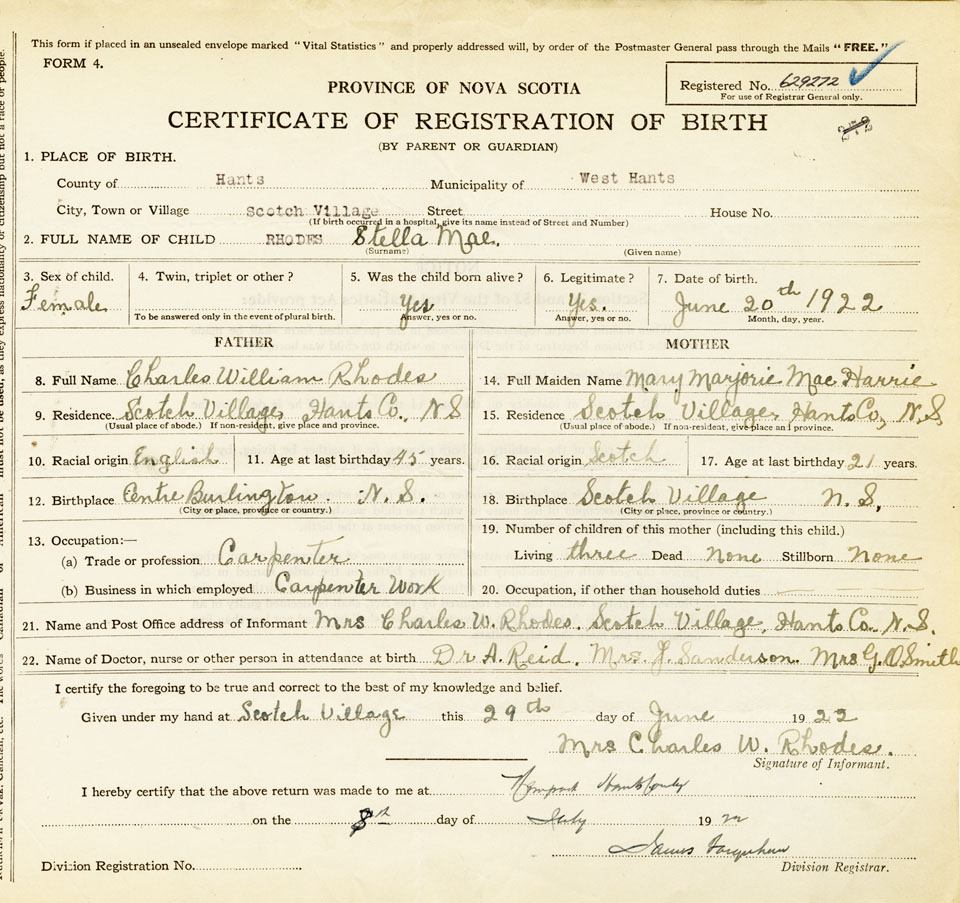 This form if placed in an unsealed envelope marked "Vital Statistics" and properly addressed will, by order of the Postmaster General pass through the Mails "FREE."
FORM 4.
Registered No. 629272
For use of Registrar General only.
PROVINCE OF NOVA SCOTIA
CERTIFICATE OF REGISTRATION OF BIRTH
(BY PARENT OR GUARDIAN)
1. PLACE OF BIRTH.
County of Hants Municipality of West Hants
City, Town or Village Scotch Village Street House No.
(If birth occurred in a hospital, give its name instead of Street and Number)
2. FULL NAME OF CHILD RHODES Stella Mae.
(Surname) (Given name)
3. Sex of child. 4. Twin, triplet or other? 5. Was the child born alive? 6. Legitimate? 7. Date of birth.
Female Yes Yes. June 20th 1922
To be answered only in the event of plural birth. Answer, yes or no. Answer, yes or no. Month, day, year.
FATHER MOTHER
8. Full Name Charles William Rhodes 14. Full Maiden Name Mary Marjorie Mac Harrie
9. Residence. Scotch Village, Hants Co. N S 15. Residence Scotch Village, Hants Co, N.S
(Usual place of abode.) If non-resident, give place and province. (Usual place of abode.) If non-resident, give place and province.
10. Racial origin English 11. Age at last birthday 45 years. 16. Racial origin Scotch 17. Age at last birthday 21 years.
12. Birthplace Centre Burlington. N. S. 18. Birthplace Scotch Village N. S,
(City or place, province or country.) (City or place, province or country.)
19. Number of children of this mother (including this child.)
13. Occupation:—
(a) Trade or profession Carpenter Living three Dead None Stillborn None
(b) Business in which employed Carpenter Work 20. Occupation, if other than household duties
21. Name and Post Office address of Informant Mrs Charles W. Rhodes. Scotch Village, Hants Co. N. S.
22. Name of Doctor, nurse or other person in attendance at birth Dr A. Reid. Mrs. J. Sanderson. Mrs G. O Smith
I certify the foregoing to be true and correct to the best of my knowledge and belief.
Given under my hand at Scotch Village this 29th day of June 1922
Mrs Charles W. Rhodes.
Signature of Informant.
I hereby certify that the above return was made to me at
on the 8th day of July 1922
James Farquhar
Division Registration No. Division Registrar.